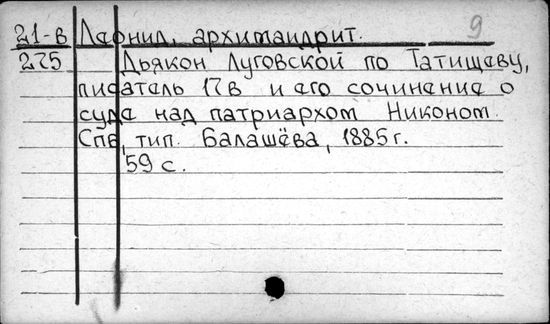 21-в Леонид, архимандрит. 9
275 Дьякон Луговской по Татищеву,
писатель 17в и его сочинение о
суде над патриархом Никоном.
Спв, тип. Балашёва, 1885 г.
59 с.